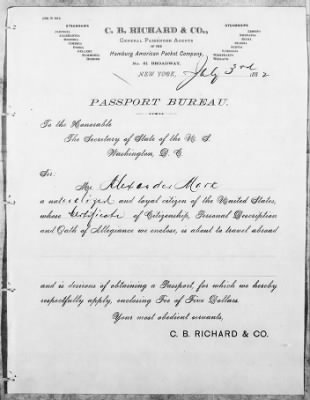 STEAMERS
C. B. RICHARD & CO.,
STEAMERS
GENERAL PASSENGER AGENTS
OF THE
Hamburg American Packet Company,
No. 61 BROADWAY,
NEW YORK, July 3rd 1882
PASSPORT BUREAU.
To the Honorable
The Secretary of State of the U. S.
Washington, D. C.
Sir:
Mr. Alexander
a naturalized and loyal citizen of the United States,
whose Certificate of Citizenship, Personal Description
and Oath of Allegiance we enclose, is about to travel abroad
and is desirous of obtaining a Passport, for which we hereby
respectfully apply, enclosing Fee of Five Dollars.
Your most obedient servants,
C. B. RICHARD & CO.